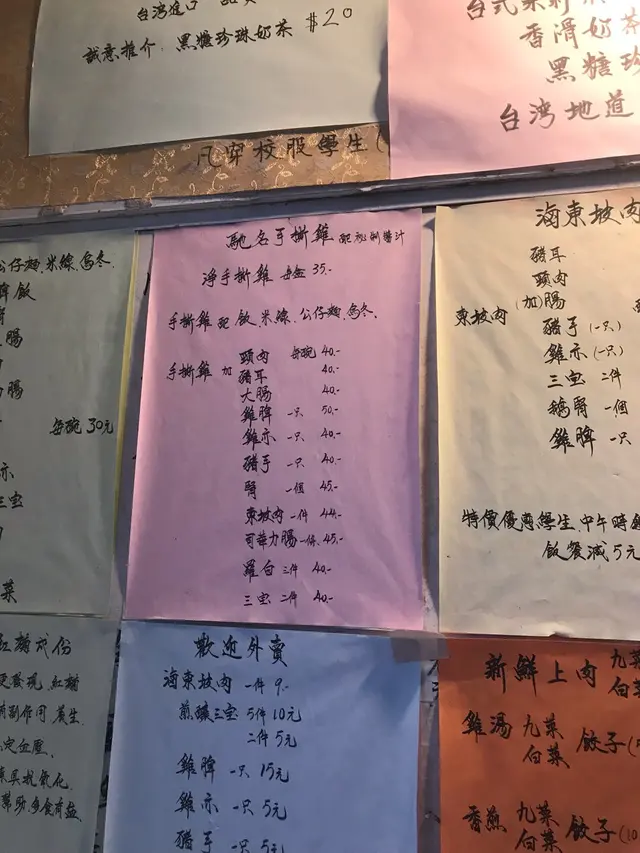 台湾進口
誠意推介 黑糖珍珠奶茶 $20
香滑奶茶
黑糖珍
台湾地道
凡穿校服學生(
公仔麵.米線.烏冬.
腸
每碗 30元
三宝
菜
馳名手撕雞 配祕制醬汁
淨手撕雞 每盒 35.-
手撕雞 配 飯.米線.公仔麵.烏冬.
手撕雞 加 頸肉 每碗 40.-
豬耳 40.-
大腸 40.-
雞脾 一只 50.-
雞亦 一只 40.-
豬手 一只 40.-
腎 一個 45.-
東坡肉 一件 44.-
可華力腸 一件 45.-
羅白 三件 40.-
三宝 二件 40.-
海東坡肉
豬耳
頸肉
東坡肉 (加) 腸
豬手 (一只)
雞亦 (一只)
三宝 二件
鵝腎 一個
雞脾 一只
特價優惠學生 中午時
飯餐減5元
歡迎外賣
海東坡肉 一件 9.-
煎釀三宝 5件10元
二件 5元
雞脾 一只 15元
雞亦 一只 5元
豬手 一只 5元
新鮮上肉 九菜
白菜
雞湯 九菜
白菜 餃子(
香煎 九菜
白菜 餃子(10